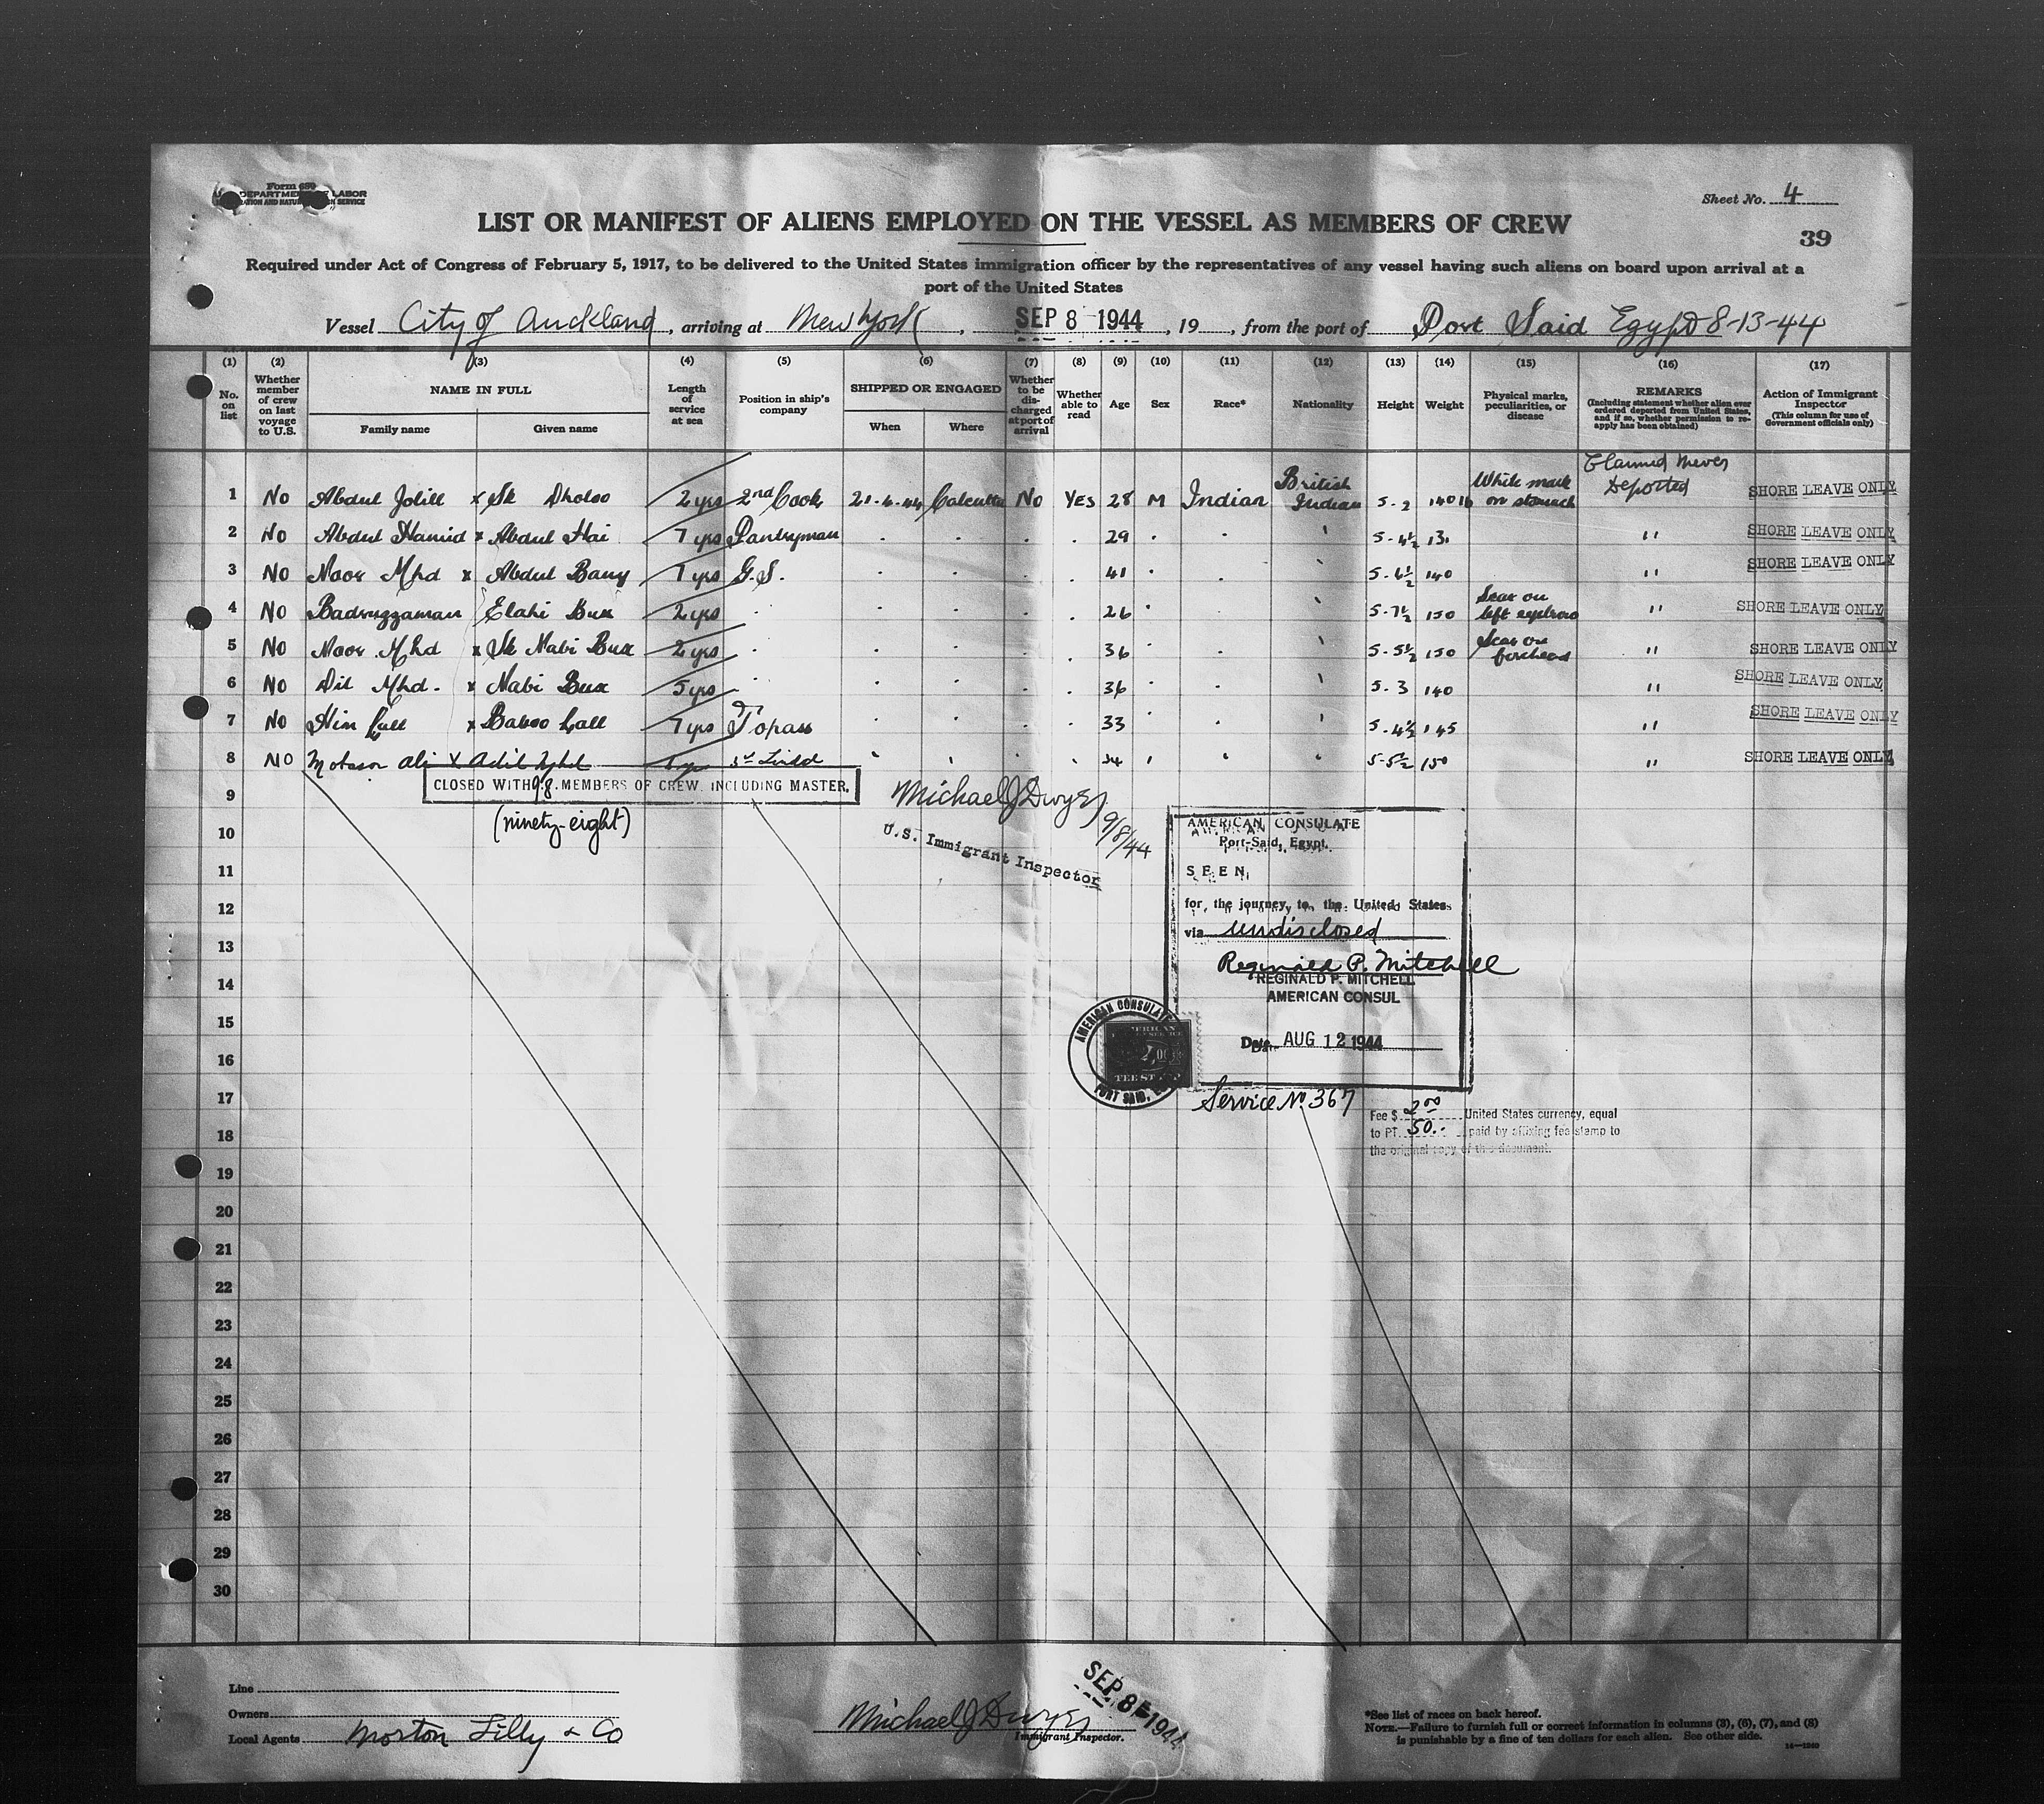 Form 680
DEPARTMENT OF LABOR
IMMIGRATION AND NATURALIZATION SERVICE
Sheet No. 4
LIST OR MANIFEST OF ALIENS EMPLOYED ON THE VESSEL AS MEMBERS OF CREW
39
Required under Act of Congress of February 5, 1917, to be delivered to the United States immigration officer by the representatives of any vessel having such aliens on board upon arrival at a
port of the United States
Vessel City of Auckland, arriving at New York, SEP 8 1944, 19, from the port of Port Said Egypt 8-13-44
(1) (2) (3) (4) (5) (6) (7) (8) (9) (10) (11) (12) (13) (14) (15) (16) (17)
No. on list
Whether member of crew on last voyage to U.S.
NAME IN FULL
Family name
Given name
Length of service at sea
Position in ship's company
SHIPPED OR ENGAGED
When
Where
Whether to be discharged at port of arrival
Whether able to read
Age
Sex
Race*
Nationality
Height
Weight
Physical marks, peculiarities, or disease
REMARKS
(Including statement whether alien ever ordered deported from United States, and if so, whether permission to reapply has been obtained)
Action of Immigrant Inspector
(This column for use of Government officials only)
1 No Abdul Jolill x Sk Dholoo 2 yrs 2nd Cook 21-6-44 Calcutta No YES 28 M Indian British Indian 5-2 140 lb White mark on stomach Claimed Never Deported SHORE LEAVE ONLY
2 No Abdul Hamid x Abdul Hai 7 yrs Pantryman . . . . 29 . . ' 5-4½ 13 " SHORE LEAVE ONLY
3 No Noor Mhd x Abdul Bany 1 yrs G.S. . . . . 41 . . ' 5-6½ 140 " SHORE LEAVE ONLY
4 No Badruzzaman Elahi Bux 2 yrs . . . . . 26 . . ' 5-7½ 150 Scar on left eyebrow " SHORE LEAVE ONLY
5 No Noor Mhd x Sk Nabi Bux 2 yrs . . . . . 36 . . ' 5-5½ 150 Scar on forehead " SHORE LEAVE ONLY
6 No Dil Mhd. x Nabi Bux 5 yrs . . . . . 36 . . ' 5-3 140 " SHORE LEAVE ONLY
7 No x Baboo Lall 7 yrs Topass . . . . 33 . . ' 5-4½ 145 " SHORE LEAVE ONLY
8 NO Ali X Adil Mhd . . . . 34 ' . . 5-5½ 150 " SHORE LEAVE ONLY
CLOSED WITH 98 MEMBERS OF CREW INCLUDING MASTER.
(ninety-eight)
Michael J Dwyer 9/8/44
U.S. Immigrant Inspector
9
10
11
12
13
14
15
16
17
18
19
20
21
22
23
24
25
26
27
28
29
30
AMERICAN CONSULATE
Port-Said, Egypt.
SEEN
for the journey to the United States
via undisclosed
Reginald P. Mitchell
REGINALD P. MITCHELL
AMERICAN CONSUL
Date AUG 12 1944
AMERICAN CONSULATE
PORT SAID,
Service No. 367
Fee $ 2.00 United States currency, equal
to PT. 50.- paid by affixing fee stamp to
the original copy of this document.
Line
Owners
Local Agents Morton Lilly & Co
Michael J Dwyer
Immigrant Inspector.
SEP 8 1944
*See list of races on back hereof.
NOTE.—Failure to furnish full or correct information in columns (3), (6), (7), and (8)
is punishable by a fine of ten dollars for each alien. See other side.